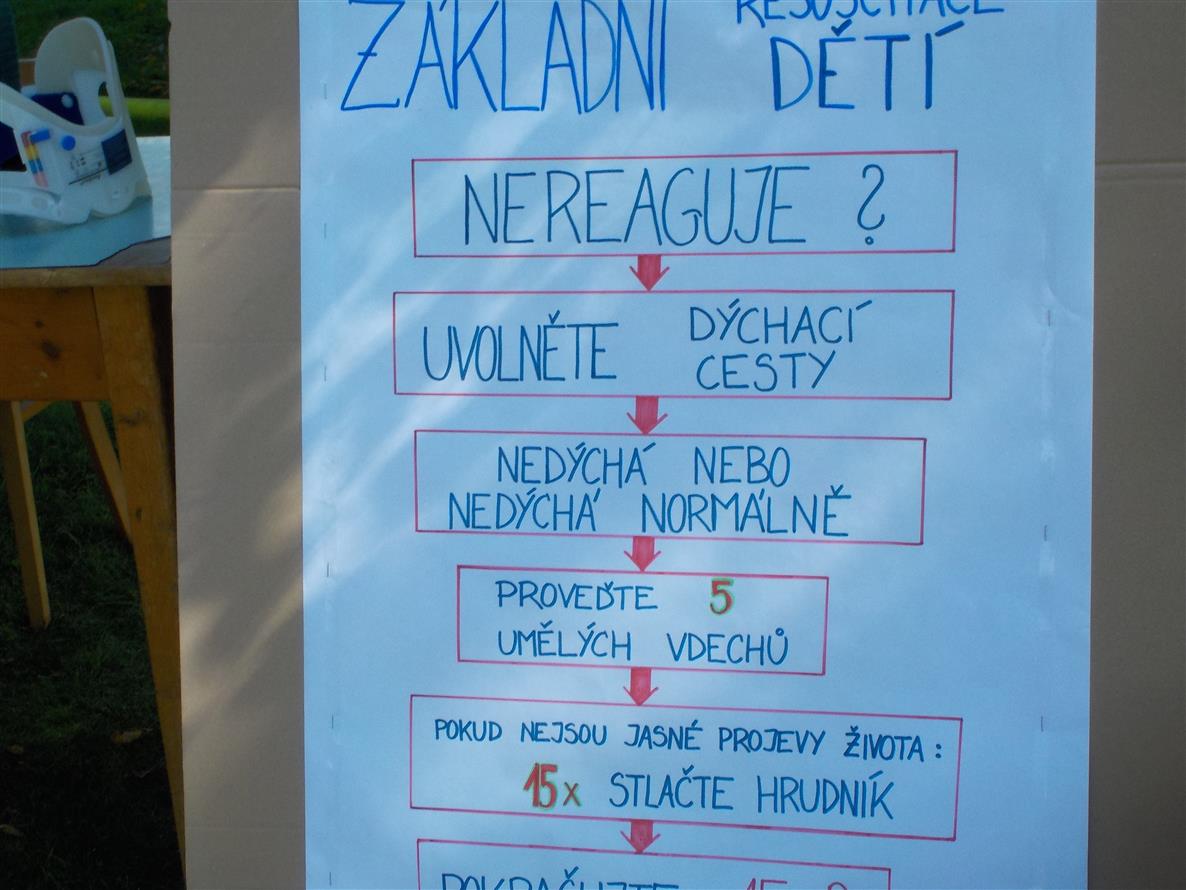 ZÁKLADNÍ RESUSCITACE
DĚTÍ
NEREAGUJE ?
UVOLNĚTE DÝCHACÍ
CESTY
NEDÝCHÁ NEBO
NEDÝCHÁ NORMÁLNĚ
PROVEĎTE 5
UMĚLÝCH VDECHŮ
POKUD NEJSOU JASNÉ PROJEVY ŽIVOTA :
15x STLAČTE HRUDNÍK
POKRAČUJTE 15